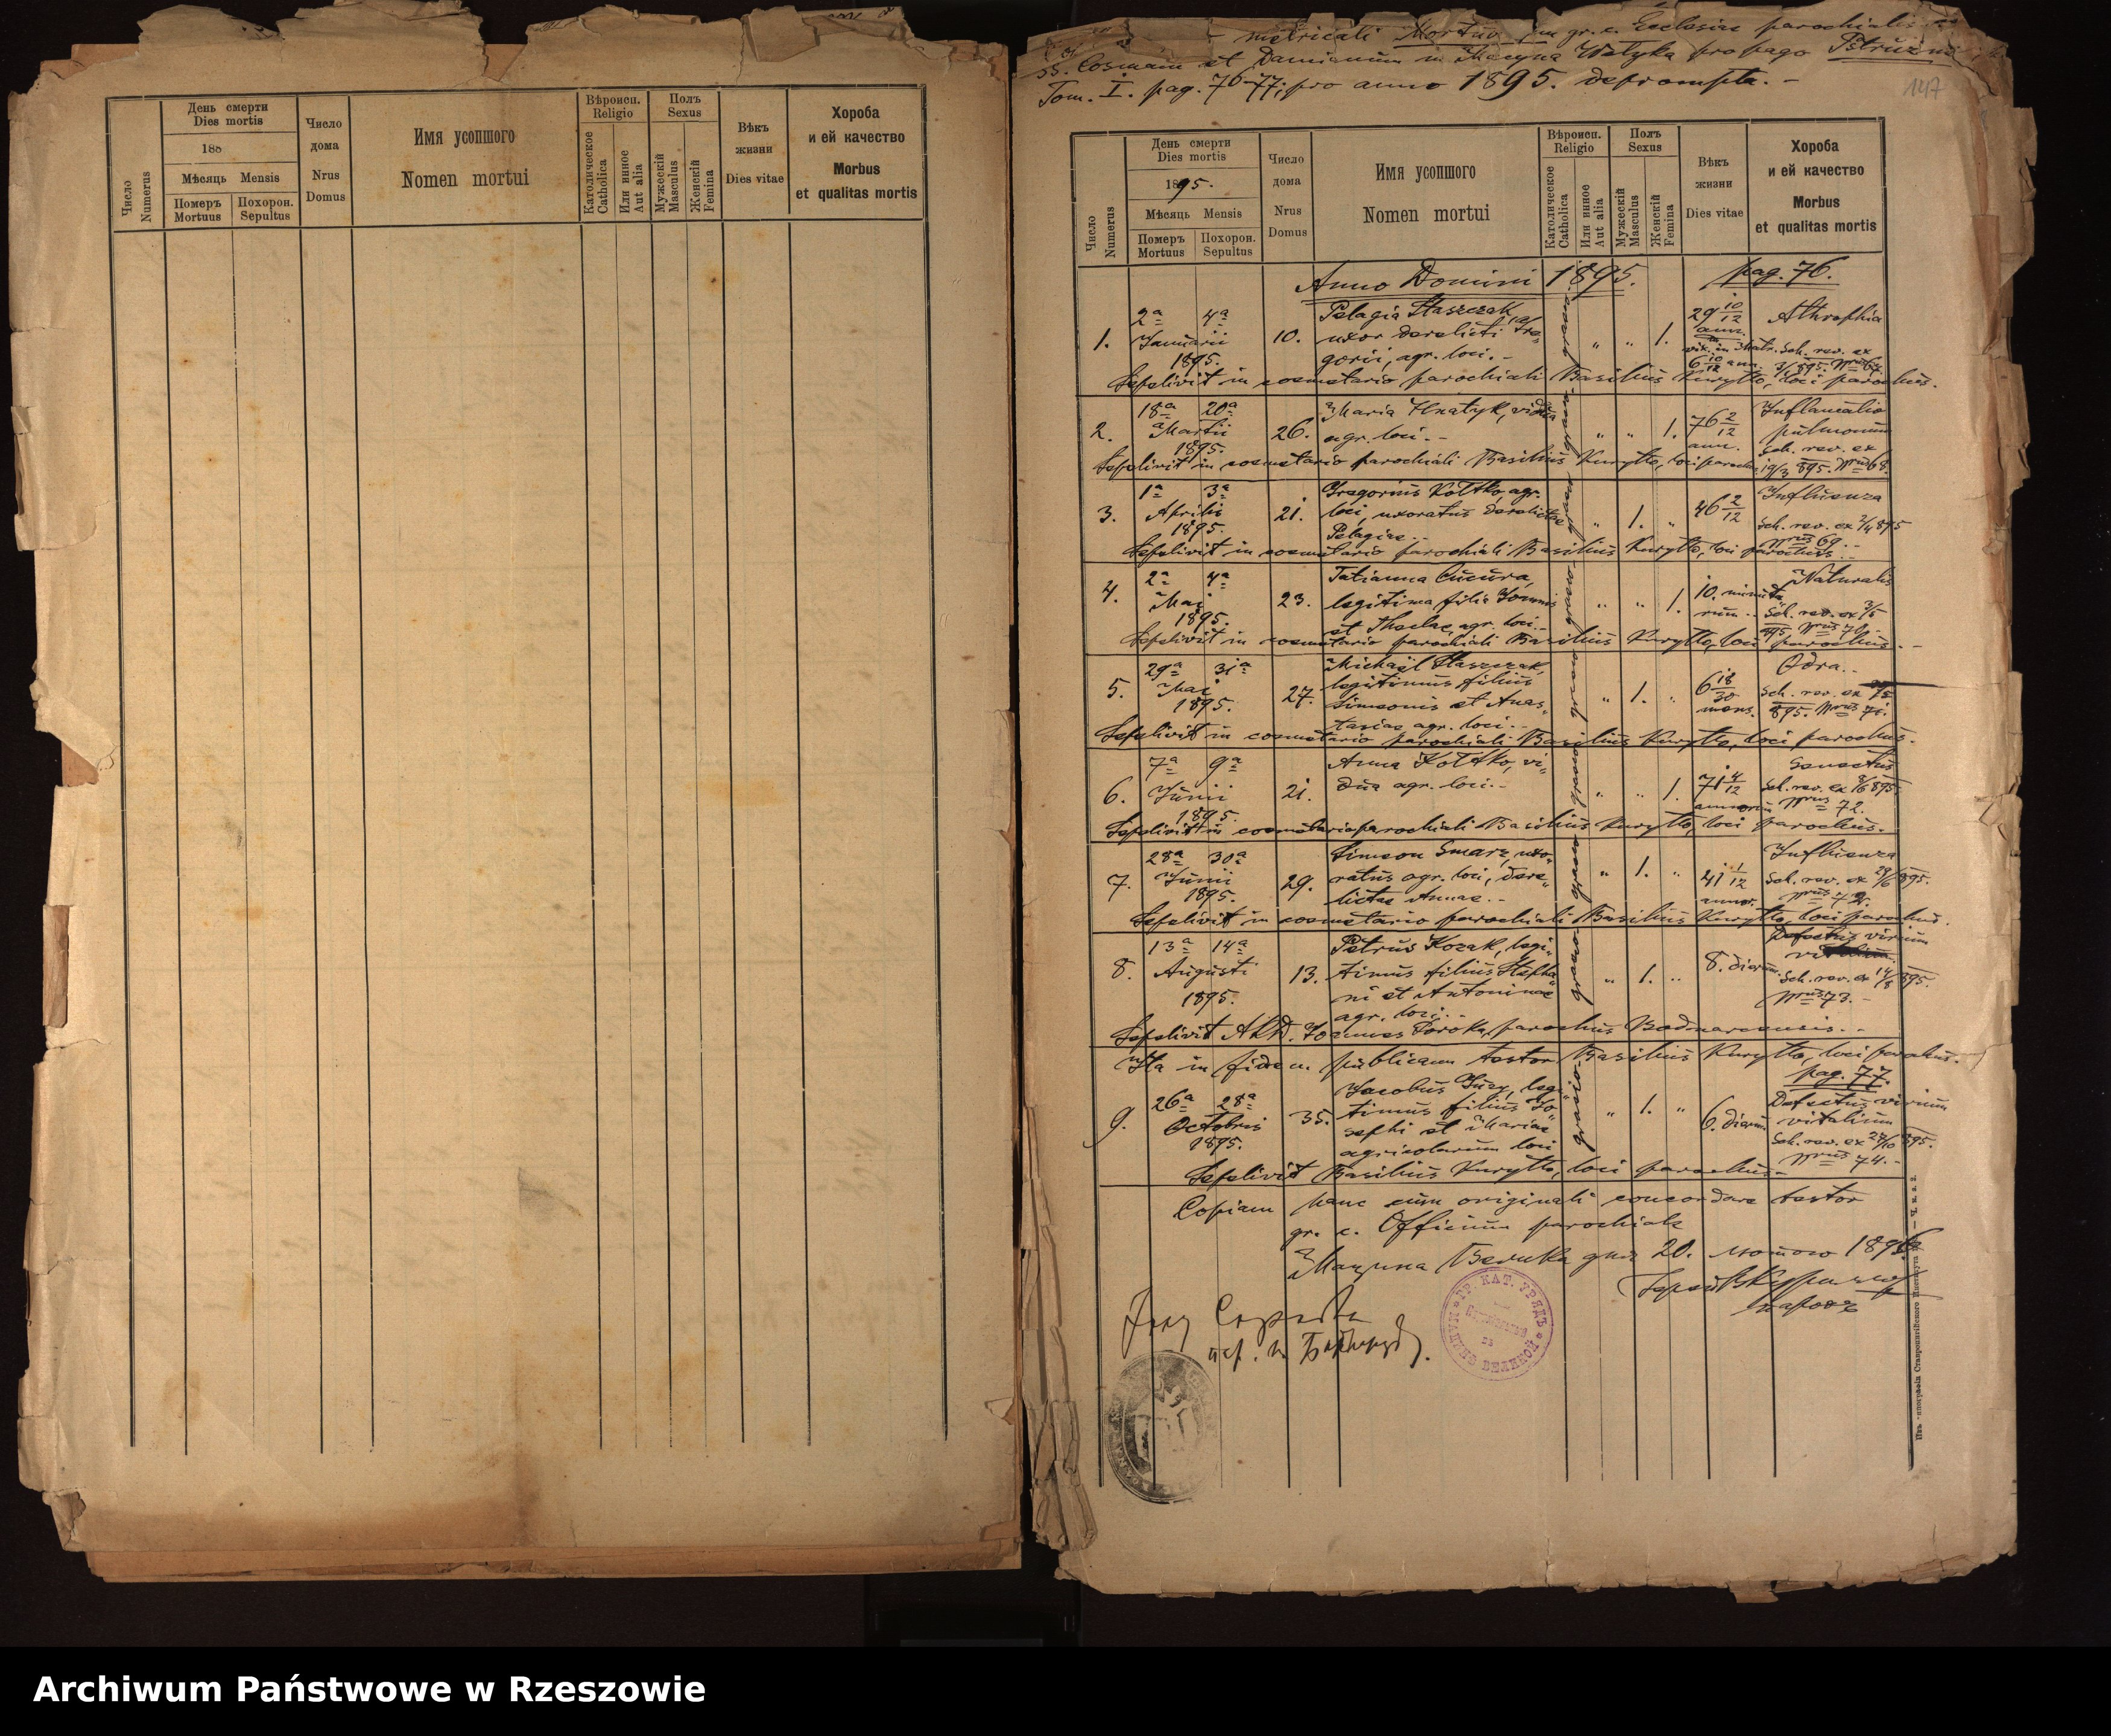 День смерти
Dies mortis
188
Мѣсяць Mensis
Померъ
Mortuus
Похорон.
Sepultus
Число
Numerus
Число
дома
Nrus
Domus
Имя усопшого
Nomen mortui
Вѣроисп.
Religio
Католическое
Catholica
Или инное
Aut alia
Полъ
Sexus
Мужескій
Masculus
Женскій
Femina
Вѣкъ
жизни
Dies vitae
Хороба
и ей качество
Morbus
et qualitas mortis
metricali Mortuorum gr. c. Ecclesiae parochialis
SS. Cosmam et Damianum in Macyna Welyka pro pago Petruzna
Tom. I. pag. 76-77, pro anno 1895. deprompta. -
147
День смерти
Dies mortis
1895.
Мѣсяць Mensis
Померъ
Mortuus
Похорон.
Sepultus
Число
Numerus
Число
дома
Nrus
Domus
Имя усопшого
Nomen mortui
Вѣроисп.
Religio
Католическое
Catholica
Или инное
Aut alia
Полъ
Sexus
Мужескій
Masculus
Женскій
Femina
Вѣкъ
жизни
Dies vitae
Хороба
и ей качество
Morbus
et qualitas mortis
Anno Domini 1895. pag. 76.
1. 2a 4a Januarii 1895. 10. Pelagia Staszczak,
uxor derelicti Gre-
gorii, agr. loci. -
„ „ 1. 29 10/12 ann. Athrophia
Sch. rev. ex
Sepelivit in coemetario parochiali Basilius Kuryłło, loci parochus.
2. 18a 20a Martii 1895. 26. Maria Hnatyk, vidua
agr. loci. -
„ „ 1. 76 2/12 ann. Inflamatio
pulmonum
Sch. rev. ex
19/3 895. Nrus 68.
Sepelivit in coemetario parochiali Basilius Kuryłło, loci parochus
3. 1a 3a Aprilis 1895. 21. Gregorius Kołtko, agr.
loci, uxoratus derelictae
Pelagiae. -
„ 1. „ 46 2/12 Influenza
Sch. rev. ex 2/4 895
Nrus 69. -
Sepelivit in coemetario parochiali Basilius Kuryłło, loci parochus. -
4. 2a 4a Maj 1895. 23. Tatianna Cucura,
legitima filia Joannis
et Theclae, agr. loci. -
„ „ 1. 10. minuta
rum. - Naturalis
Sch. rev. ex 3/5
895. Nrus 70.
Sepelivit in coemetario parochiali Basilius Kuryłło, loci parochus. -
5. 29a 31a Maj 1895. 27. Michaël Staszczak,
legitimus filius
Simeonis et Anas-
tasiae agr. loci. -
„ 1. „ 6 18/30 mens. Odra. -
Sch. rev. ex
895. Nrus 71.
Sepelivit in coemetario parochiali Basilius Kuryłło, loci parochus.
6. 7a 9a Junii 1895. 21. Anna Kołtko, vi-
dua agr. loci. -
„ „ 1. 71 4/12 annorum Senectus
Sch. rev. ex 8/6 895.
Nrus 72.
Sepelivit in coemetario parochiali Basilius Kuryłło, loci parochus.
7. 28a 30a Junii 1895. 29. Simeon Smarz, uxo-
ratus agr. loci, dere-
lictae Annae. -
„ 1. „ 41 1/12 annor. Influenza
Sch. rev. ex 29/6 895.
Sepelivit in coemetario parochiali Basilius Kuryłło, loci parochus.
8. 13a 14a Augusti 1895. 13. Petrus Kozak, legi-
timus filius Stepha-
ni et Antoninae
agr. loci. -
„ 1. „ 8. dierum. Defectus virium
Sch. rev. ex 14/8 895.
Nrus 73. -
Sepelivit Joannes parochus Bodnarcensis. -
Ita in fidem publicam testor Basilius Kuryłło, loci parochus.
pag. 77.
9. 26a 28a Octobris 1895. 35. Jacobus legi-
timus filius Jo-
sephi et Mariae
agricolarum loci
„ 1. „ 6. dierum Defectus virium
vitalium
Sch. rev. ex 27/10 895.
Nrus 74. -
Sepelivit Basilius Kuryłło, loci parochus. -
Copiam hanc cum originali concordare testor
gr. c. Officium parochiale
Мацина Велика дня 20. лютого 1896
парохъ
Из типографіи Ставропигійского Института
Archiwum Państwowe w Rzeszowie